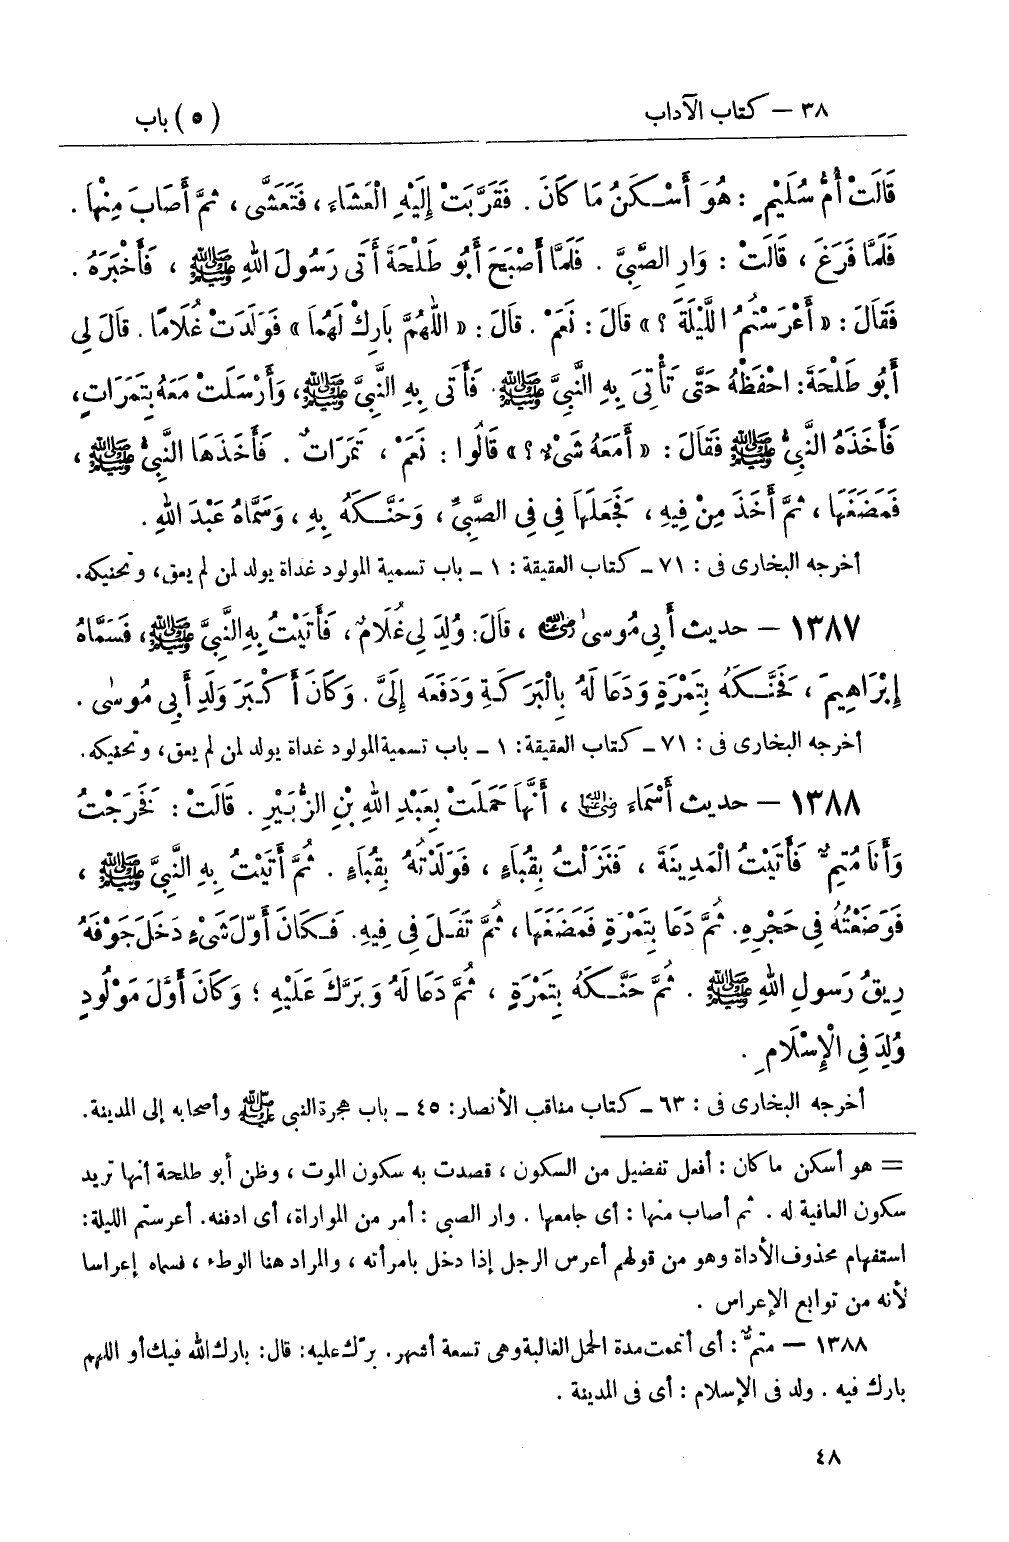 ٣٨ — كتاب الآداب
(٥) باب
قَالَتْ أُمُّ سُلَيْمٍ : هُوَ أَسْكَنُ مَا كَانَ . فَقَرَّبَتْ إِلَيْهِ الْعَشَاءَ ، فَتَعَشَّى ، ثُمَّ أَصَابَ مِنْهَا .
فَلَمَّا فَرَغَ ، قَالَتْ : وَارِ الصَّبِيَّ . فَلَمَّا أَصْبَحَ أَبُو طَلْحَةَ أَتَى رَسُولَ اللهِ ﷺ ، فَأَخْبَرَهُ .
فَقَالَ : « أَعْرَسْتُمُ اللَّيْلَةَ ؟ » قَالَ : نَعَمْ . قَالَ : « اللَّهُمَّ بَارِكْ لَهُمَا » فَوَلَدَتْ غُلَامًا . قَالَ لِي
أَبُو طَلْحَةَ : احْفَظْهُ حَتَّى تَأْتِيَ بِهِ النَّبِيَّ ﷺ . فَأَتَى بِهِ النَّبِيَّ ﷺ ، وَأَرْسَلَتْ مَعَهُ بِتَمَرَاتٍ ،
فَأَخَذَهُ النَّبِيُّ ﷺ فَقَالَ : « أَمَعَهُ شَىْءٌ ؟ » قَالُوا : نَعَمْ ، تَمَرَاتٌ . فَأَخَذَهَا النَّبِيُّ ﷺ ،
فَمَضَغَهَا ، ثُمَّ أَخَذَ مِنْ فِيهِ ، فَجَعَلَهَا فِي فِي الصَّبِيِّ ، وَحَنَّكَهُ بِهِ ، وَسَمَّاهُ عَبْدَ اللهِ .
أخرجه البخارى فى : ٧١ ـ كتاب العقيقة : ١ ـ باب تسمية المولود غداة يولد لمن لم يعق ، وتحنيكه .
١٣٨٧ — حديث أَبِي مُوسَى رضي الله عنه ، قَالَ : وُلِدَ لِي غُلَامٌ ، فَأَتَيْتُ بِهِ النَّبِيَّ ﷺ ، فَسَمَّاهُ
إِبْرَاهِيمَ ، فَحَنَّكَهُ بِتَمْرَةٍ وَدَعَا لَهُ بِالْبَرَكَةِ وَدَفَعَه إِلَيَّ . وَكَانَ أَكْبَرَ وَلَدِ أَبِي مُوسَى .
أخرجه البخارى فى : ٧١ ـ كتاب العقيقة : ١ ـ باب تسمية المولود غداة يولد لمن لم يعق ، وتحنيكه .
١٣٨٨ — حديث أَسْمَاءَ رضي الله عنها ، أَنَّهَا حَمَلَتْ بِعَبْدِ اللهِ بْنِ الزُّبَيْرِ . قَالَتْ : فَخَرَجْتُ
وَأَنَا مُتِمٌّ فَأَتَيْتُ الْمَدِينَةَ ، فَنَزَلْتُ بِقُبَاءٍ ، فَوَلَدْتُهُ بِقُبَاءٍ . ثُمَّ أَتَيْتُ بِهِ النَّبِيَّ ﷺ ،
فَوَضَعْتُهُ فِي حَجْرِهِ . ثُمَّ دَعَا بِتَمْرَةٍ فَمَضَغَهَا ، ثُمَّ تَفَلَ فِي فِيهِ . فَكَانَ أَوَّلَ شَىْءٍ دَخَلَ جَوْفَهُ
رِيقُ رَسُولِ اللهِ ﷺ . ثُمَّ حَنَّكَهُ بِتَمْرَةٍ ، ثُمَّ دَعَا لَهُ وَبَرَّكَ عَلَيْهِ ؛ وَكَانَ أَوَّلَ مَوْلُودٍ
وُلِدَ فِي الْإِسْلَامِ .
أخرجه البخارى فى : ٦٣ ـ كتاب مناقب الأنصار : ٤٥ ـ باب هجرة النبى ﷺ وأصحابه إلى المدينة .
= هو أسكن ما كان : أفعل تفضيل من السكون ، قصدت به سكون الموت ، وظن أبو طلحة أنها تريد
سكون العافية له . ثم أصاب منها : أى جامعها . وار الصبى : أمر من المواراة ، أى ادفنه . أعرستم الليلة :
استفهام محذوف الأداة وهو من قولهم أعرس الرجل إذا دخل بامرأته ، والمراد هنا الوطء ، فسماه إعراسا
لأنه من توابع الإعراس .
١٣٨٨ — متمٌّ : أى أتممت مدة الحمل الغالبة وهى تسعة أشهر . برّك عليه : قال : بارك الله فيك أو اللهم
بارك فيه . ولد فى الإسلام : أى فى المدينة .
٤٨